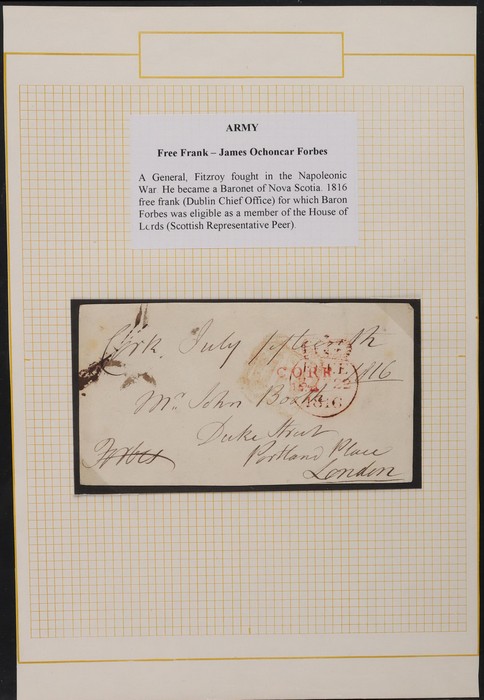 ARMY
Free Frank – James Ochoncar Forbes
A General, Fitzroy fought in the Napoleonic
War. He became a Baronet of Nova Scotia. 1816
free frank (Dublin Chief Office) for which Baron
Forbes was eligible as a member of the House of
Lords (Scottish Representative Peer).
Cork July fifteenth
1816
CORK
FREE
22
1816
Mr John Booth
Duke Street
Portland Place
London
Forbes